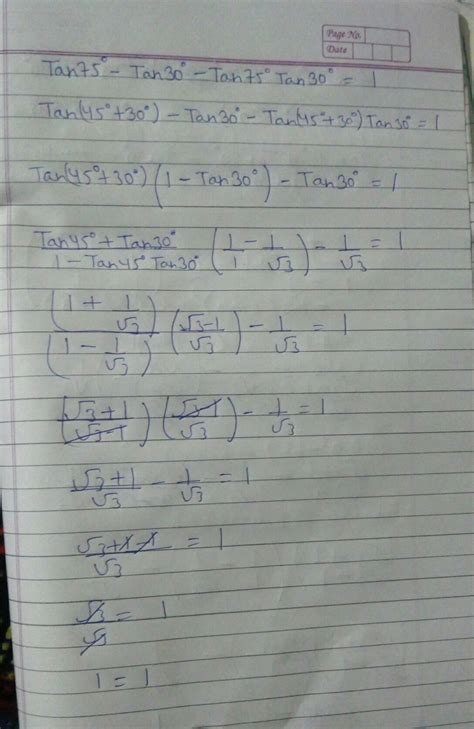 Page No.
Date
Tan75° - Tan30° - Tan75° Tan30° = 1
Tan(45°+30°) - Tan30° - Tan(45°+30°) Tan30° = 1
Tan(45°+30°) (1 - Tan30°) - Tan30° = 1
(Tan45° + Tan30°)/(1 - Tan45° Tan30°) (1/1 - 1/√3) - 1/√3 = 1
(1 + 1/√3)/(1 - 1/√3) (√3-1/√3) - 1/√3 = 1
(√3+1/√3-1) (√3-1/√3) - 1/√3 = 1
√3+1/√3 - 1/√3 = 1
√3+1-1/√3 = 1
√3/√3 = 1
1 = 1